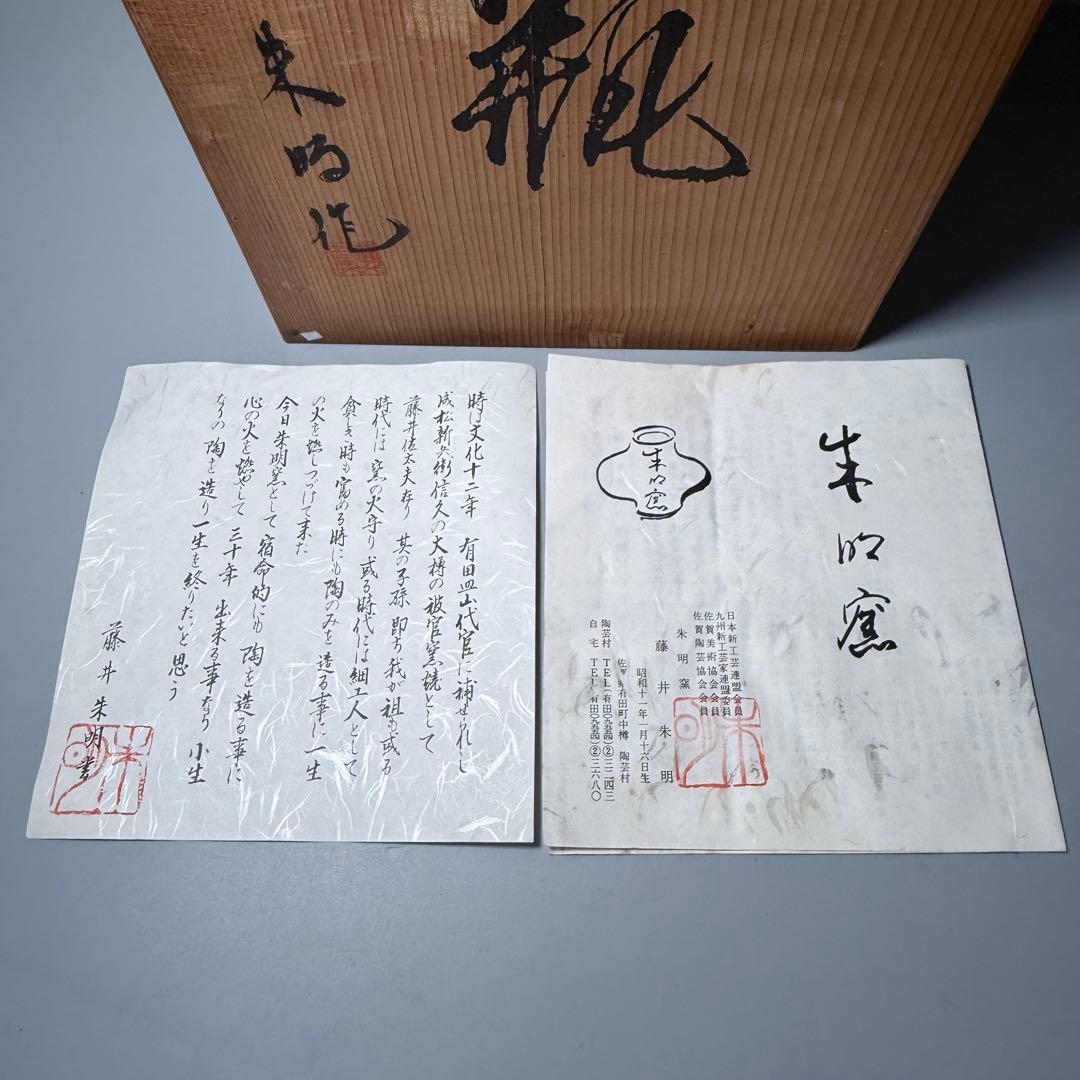 瓶
朱明作
時は文化十二年 有田皿山代官に補せられし
成松新兵衛信久の大樽の被官窯焼として
藤井佐太夫存り 其の子孫 即ち我が祖も或る
時代には窯の火守り或る時代には細工人として
貧しき時も富める時にも陶のみを造る事に一生
の火を燃しつづけて来た
今日朱明窯として宿命的にも陶を造る事に
心の火を燃やして三十年 出来る事なり 小生
なりの陶を造り一生を終りたいと思う
藤井朱明書
朱明窯
朱明窯
日本新工芸連盟会員
九州新工芸家連盟委員
佐賀美術協会会員
佐賀陶芸協会会員
朱明窯
藤井朱明
昭和十一年一月十六日生
有田町中樽 陶芸村
陶芸村 TEL(有田〇九五四)②三二四三
自宅 TEL(有田〇九五四)②三六八〇